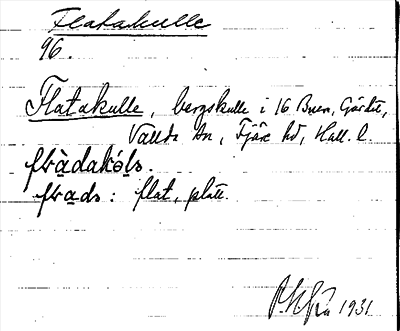 Flatakulle
96.
Flatakulle, bergskulle i 16 Buen, Gärdet,
Vallda sn, Fjäre hd, Hall. l.
flràdakóls.
flrads: flat, platt.
1931